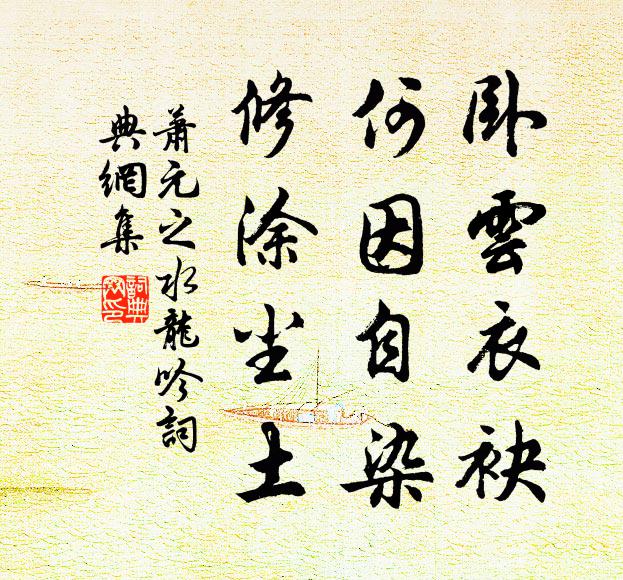 卧雲衣袂
何因自染
修涂尘土
萧元之水龍吟詞
典網集
詞典